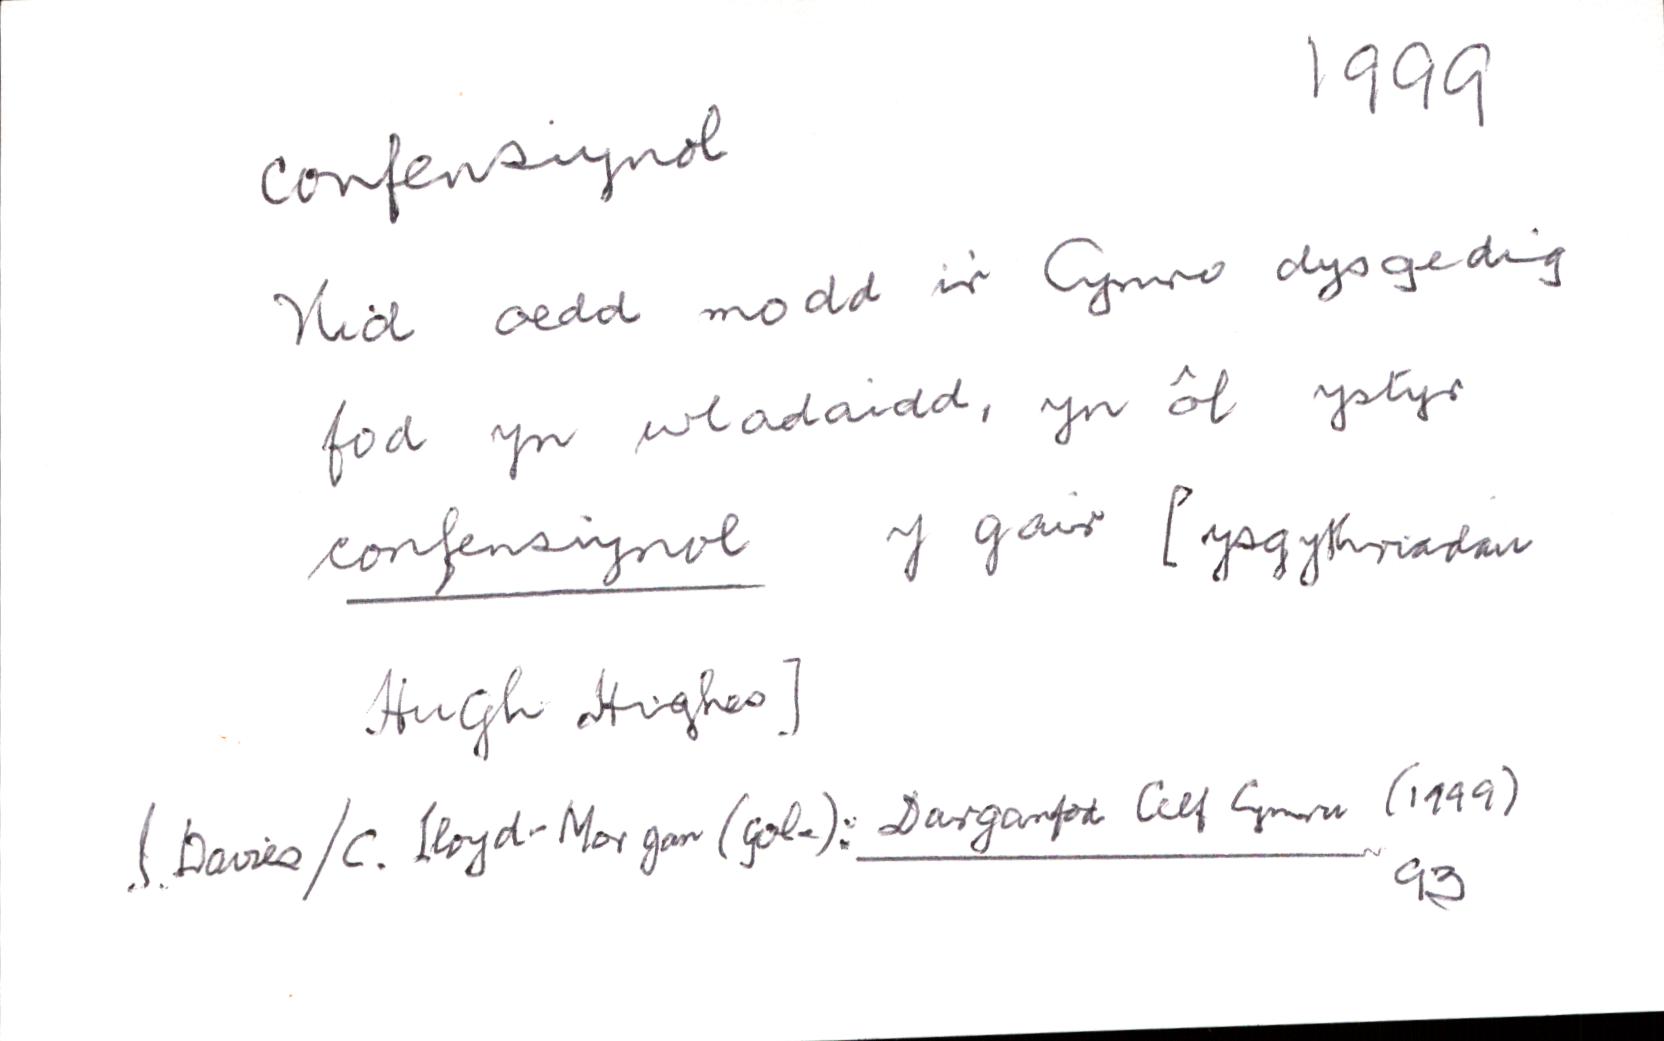 1999
confensiynol
Nid oedd modd i'r Cymro dysgedig
fod yn wladaidd, yn ôl ystyr
confensiynol y gair [ysgythriadau
Hugh Hughes]
I. Davies/C. Lloyd-Morgan (gol.): Darganfod Celf Cymru (1999)
93